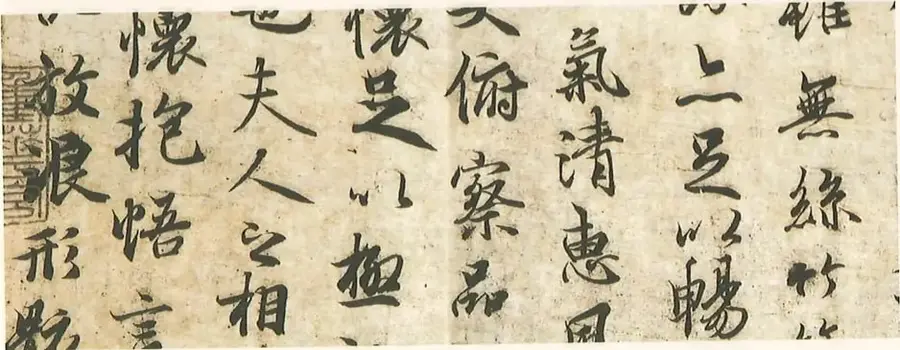 雖無絲竹管
亦足以暢
氣清惠風
大俯察品
懷足以極
也夫人之相
懷抱悟言
放浪形骸